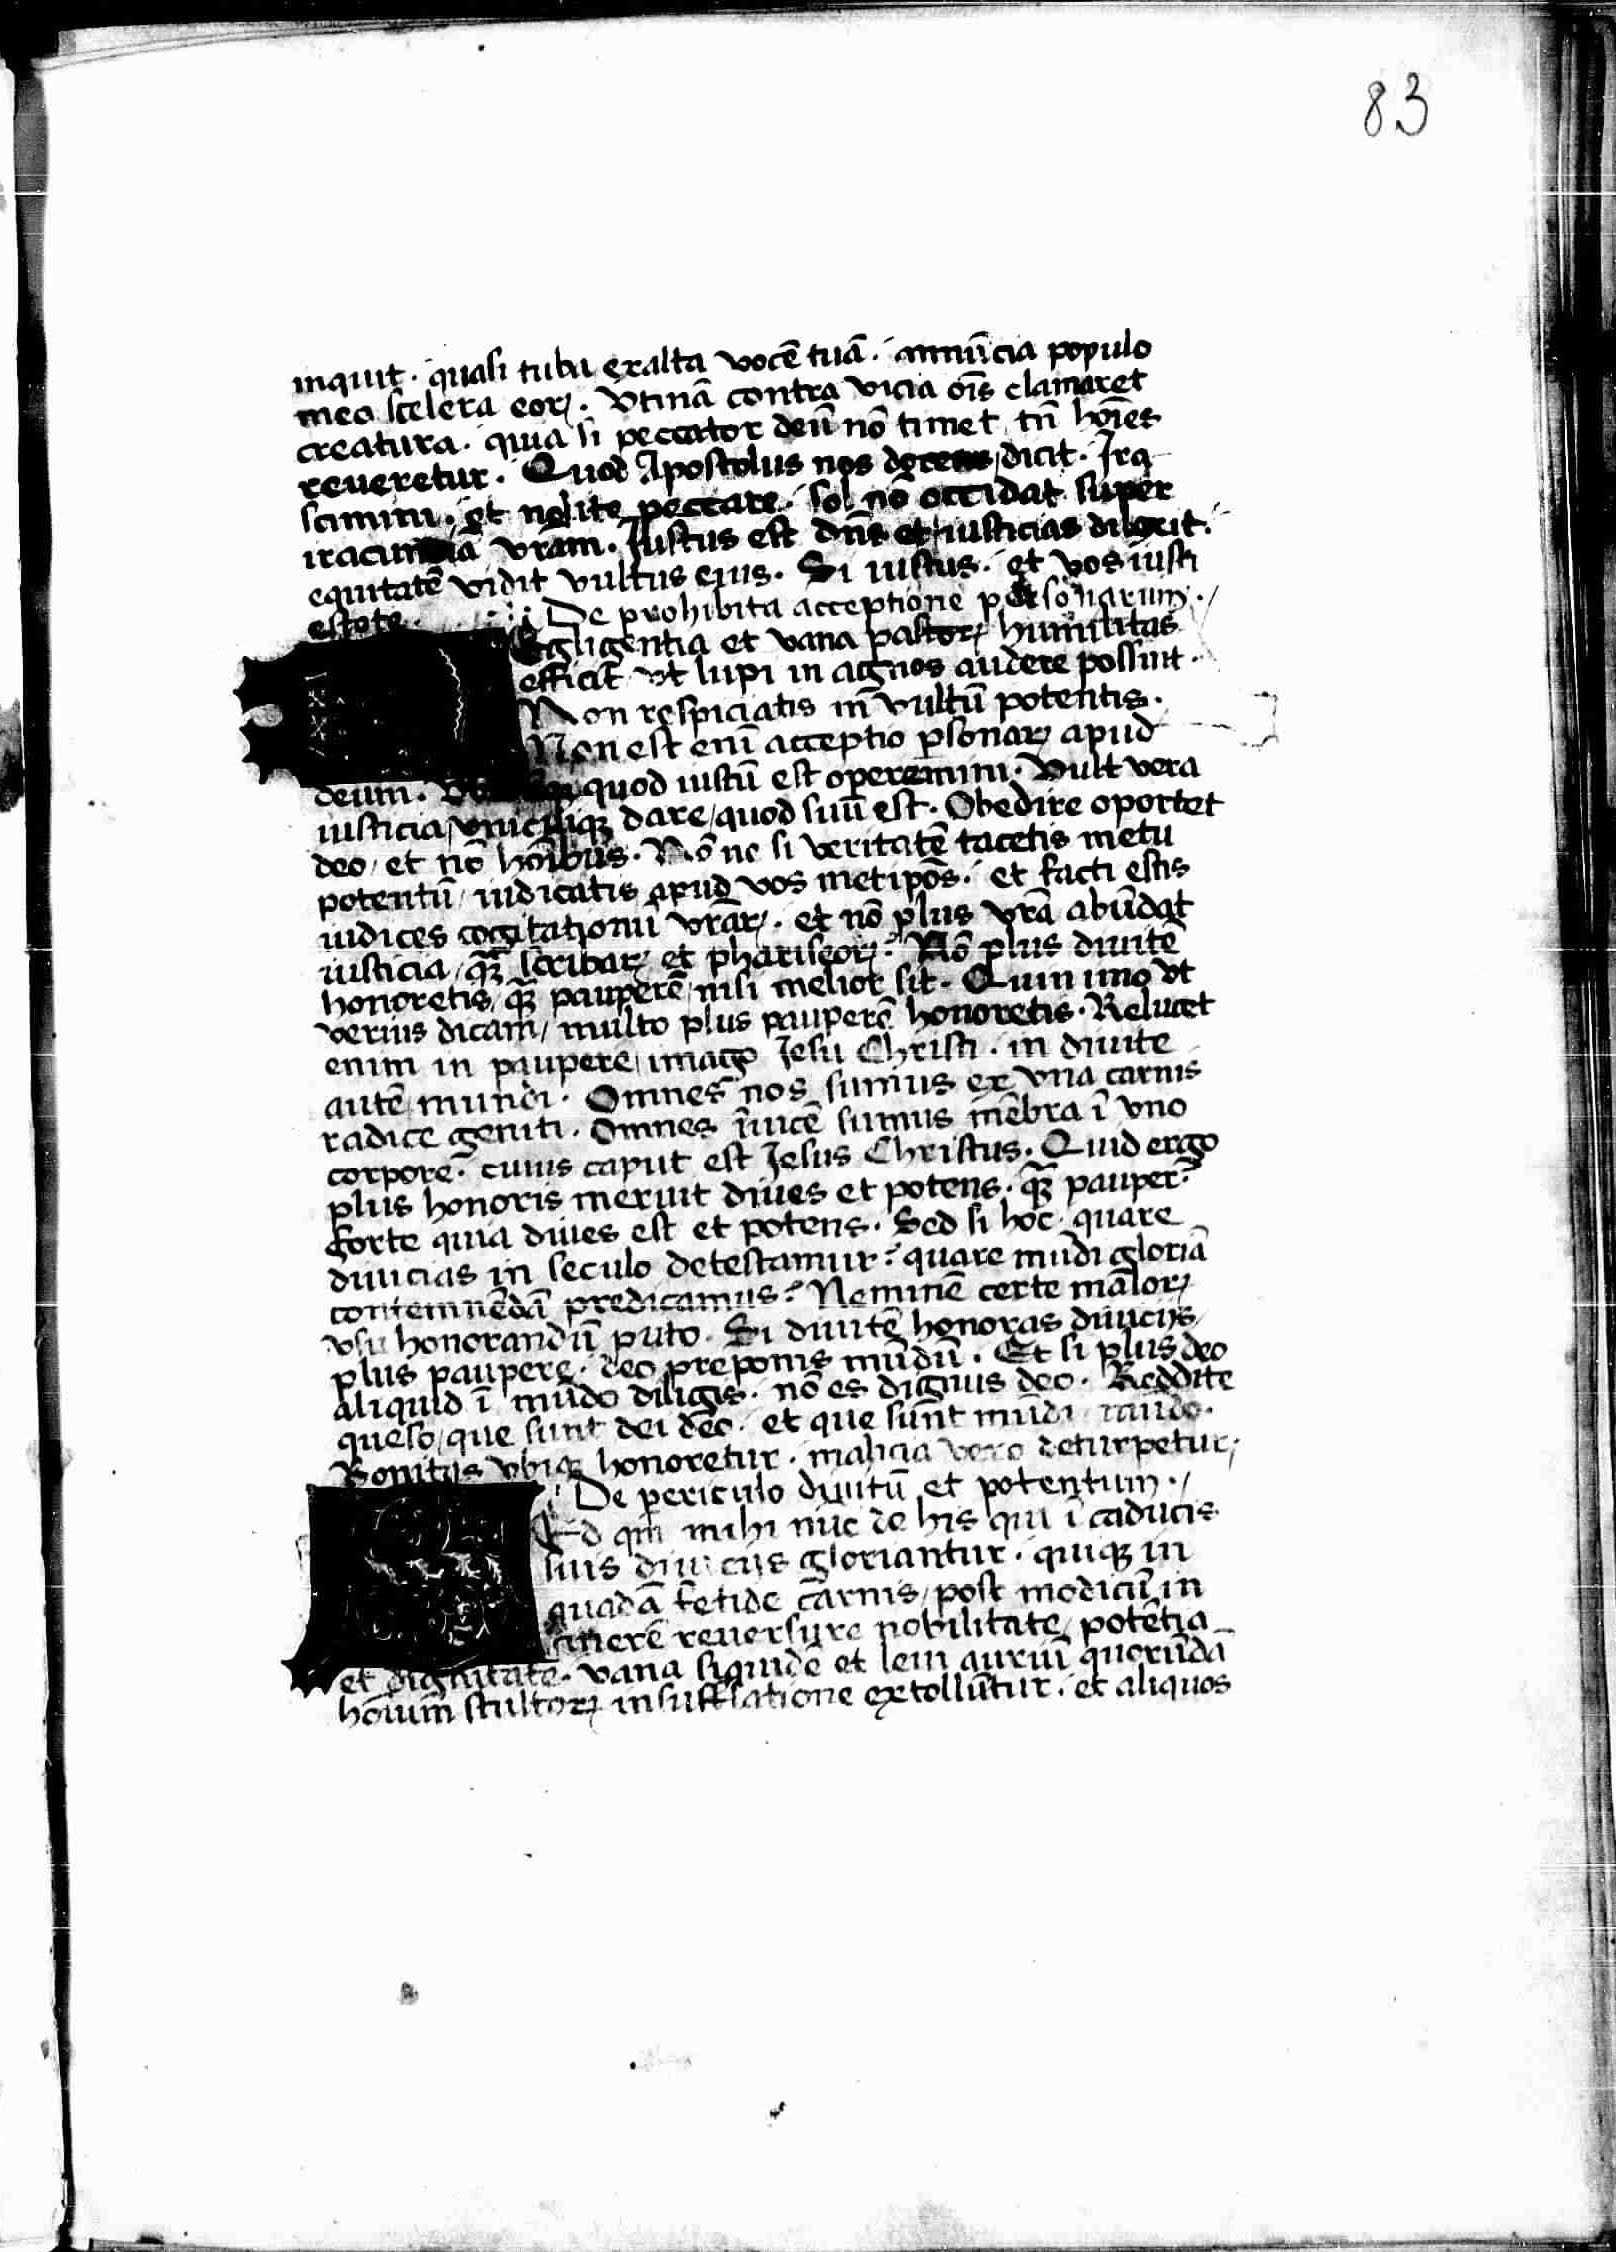 83
inquit. quasi tuba exalta vocē tuā. annūcia populo
meo scelera eoꝝ. Vtinā contra vicia oīs clamaret
creatura. quia si peccator deū nō timet, tn̄ hoīes
reueretur. Quod Apostolus nos docens, dicit. Ira
scimini. et nolite peccare. sol nō occidat super
iracundiā vrām. Iustus est dn̄s et iusticias dilexit.
equitatē vidit vultus eius. Si iustus. et vos iusti
estote. De prohibita acceptione personarum.
Egligentia et vana pastoꝝ humilitas
efficit vt lupi in agnos audere possint.
Non respiciatis in vultū potentis.
Non est enī acceptio ꝑsonaꝝ apud
deum. quod iustū est operemini. Vult vera
iusticia, vnicuiqꝫ dare, quod suū est. Obedire oportet
deo, et nō hoībus. Nō ne si veritatē tacetis metu
potentū, iudicatis apud vos metip̄os. et facti estis
iudices cogitationū vrāꝝ. et nō plus vrā abūdat
iusticia, qꝫ̄ scribaꝝ et phariseoꝝ? Nō plus diuitē
honoretis, qꝫ̄ pauperē, nisi melior sit. Quin imo vt
verius dicam, multo plus pauperē honoretis. Relucet
enim in paupere, imago Iesu Christi. in diuite
autē, mundi. Omnes nos sumus ex vna carnis
radice geniti. Omnes īuicē sumus mēbra ī vno
corpore. cuius caput est Iesus Christus. Quid ergo
plus honoris meruit diues et potens. qꝫ̄ pauper?
forte quia diues est et potens. Sed si hoc. quare
diuicias in seculo detestamur? quare mūdi gloriā
contemnēdā predicamus? Neminē certe māloꝝ
vsu honorandū puto. Si diuitē honoras diuicijs,
plus paupere. deo preponis mūdū. Et si plus deo
aliquid ī mūdo diligis. nō es dignus deo. Reddite
queso, que sunt dei deo. et que sunt mūdi mūdo.
Bonitas vbiqꝫ honoretur. malicia vero deturpetur.
De periculo diuitū et potentum.
Ed qm̄ mihi nūc de his qui ī caducis
suis diuicijs gloriantur. quiqꝫ in
quadā fetide carnis, post modicū in
cinerē reuersure nobilitate, potētia
et dignitate. vana siquidē et leui aurium quorūdā
hoīum stultoꝝ insufflatione extollūtur. et aliquos